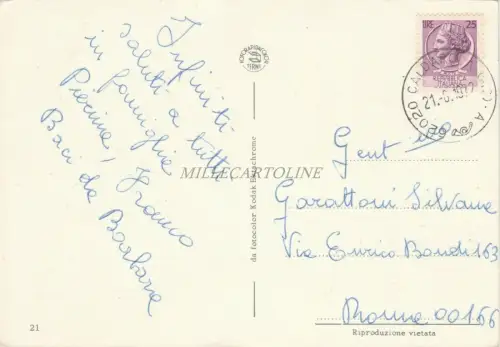 Infiniti
saluti a tutti
in famiglia
Pierina, Franco
Baci da Barbara
21
da fotocolor Kodak Ektachrome
MILLECARTOLINE
LIRE 25
62020
21.-6.197
Gent
Garattoni Silvana
Via Enrico Bondi 163
Roma 00166
Riproduzione vietata